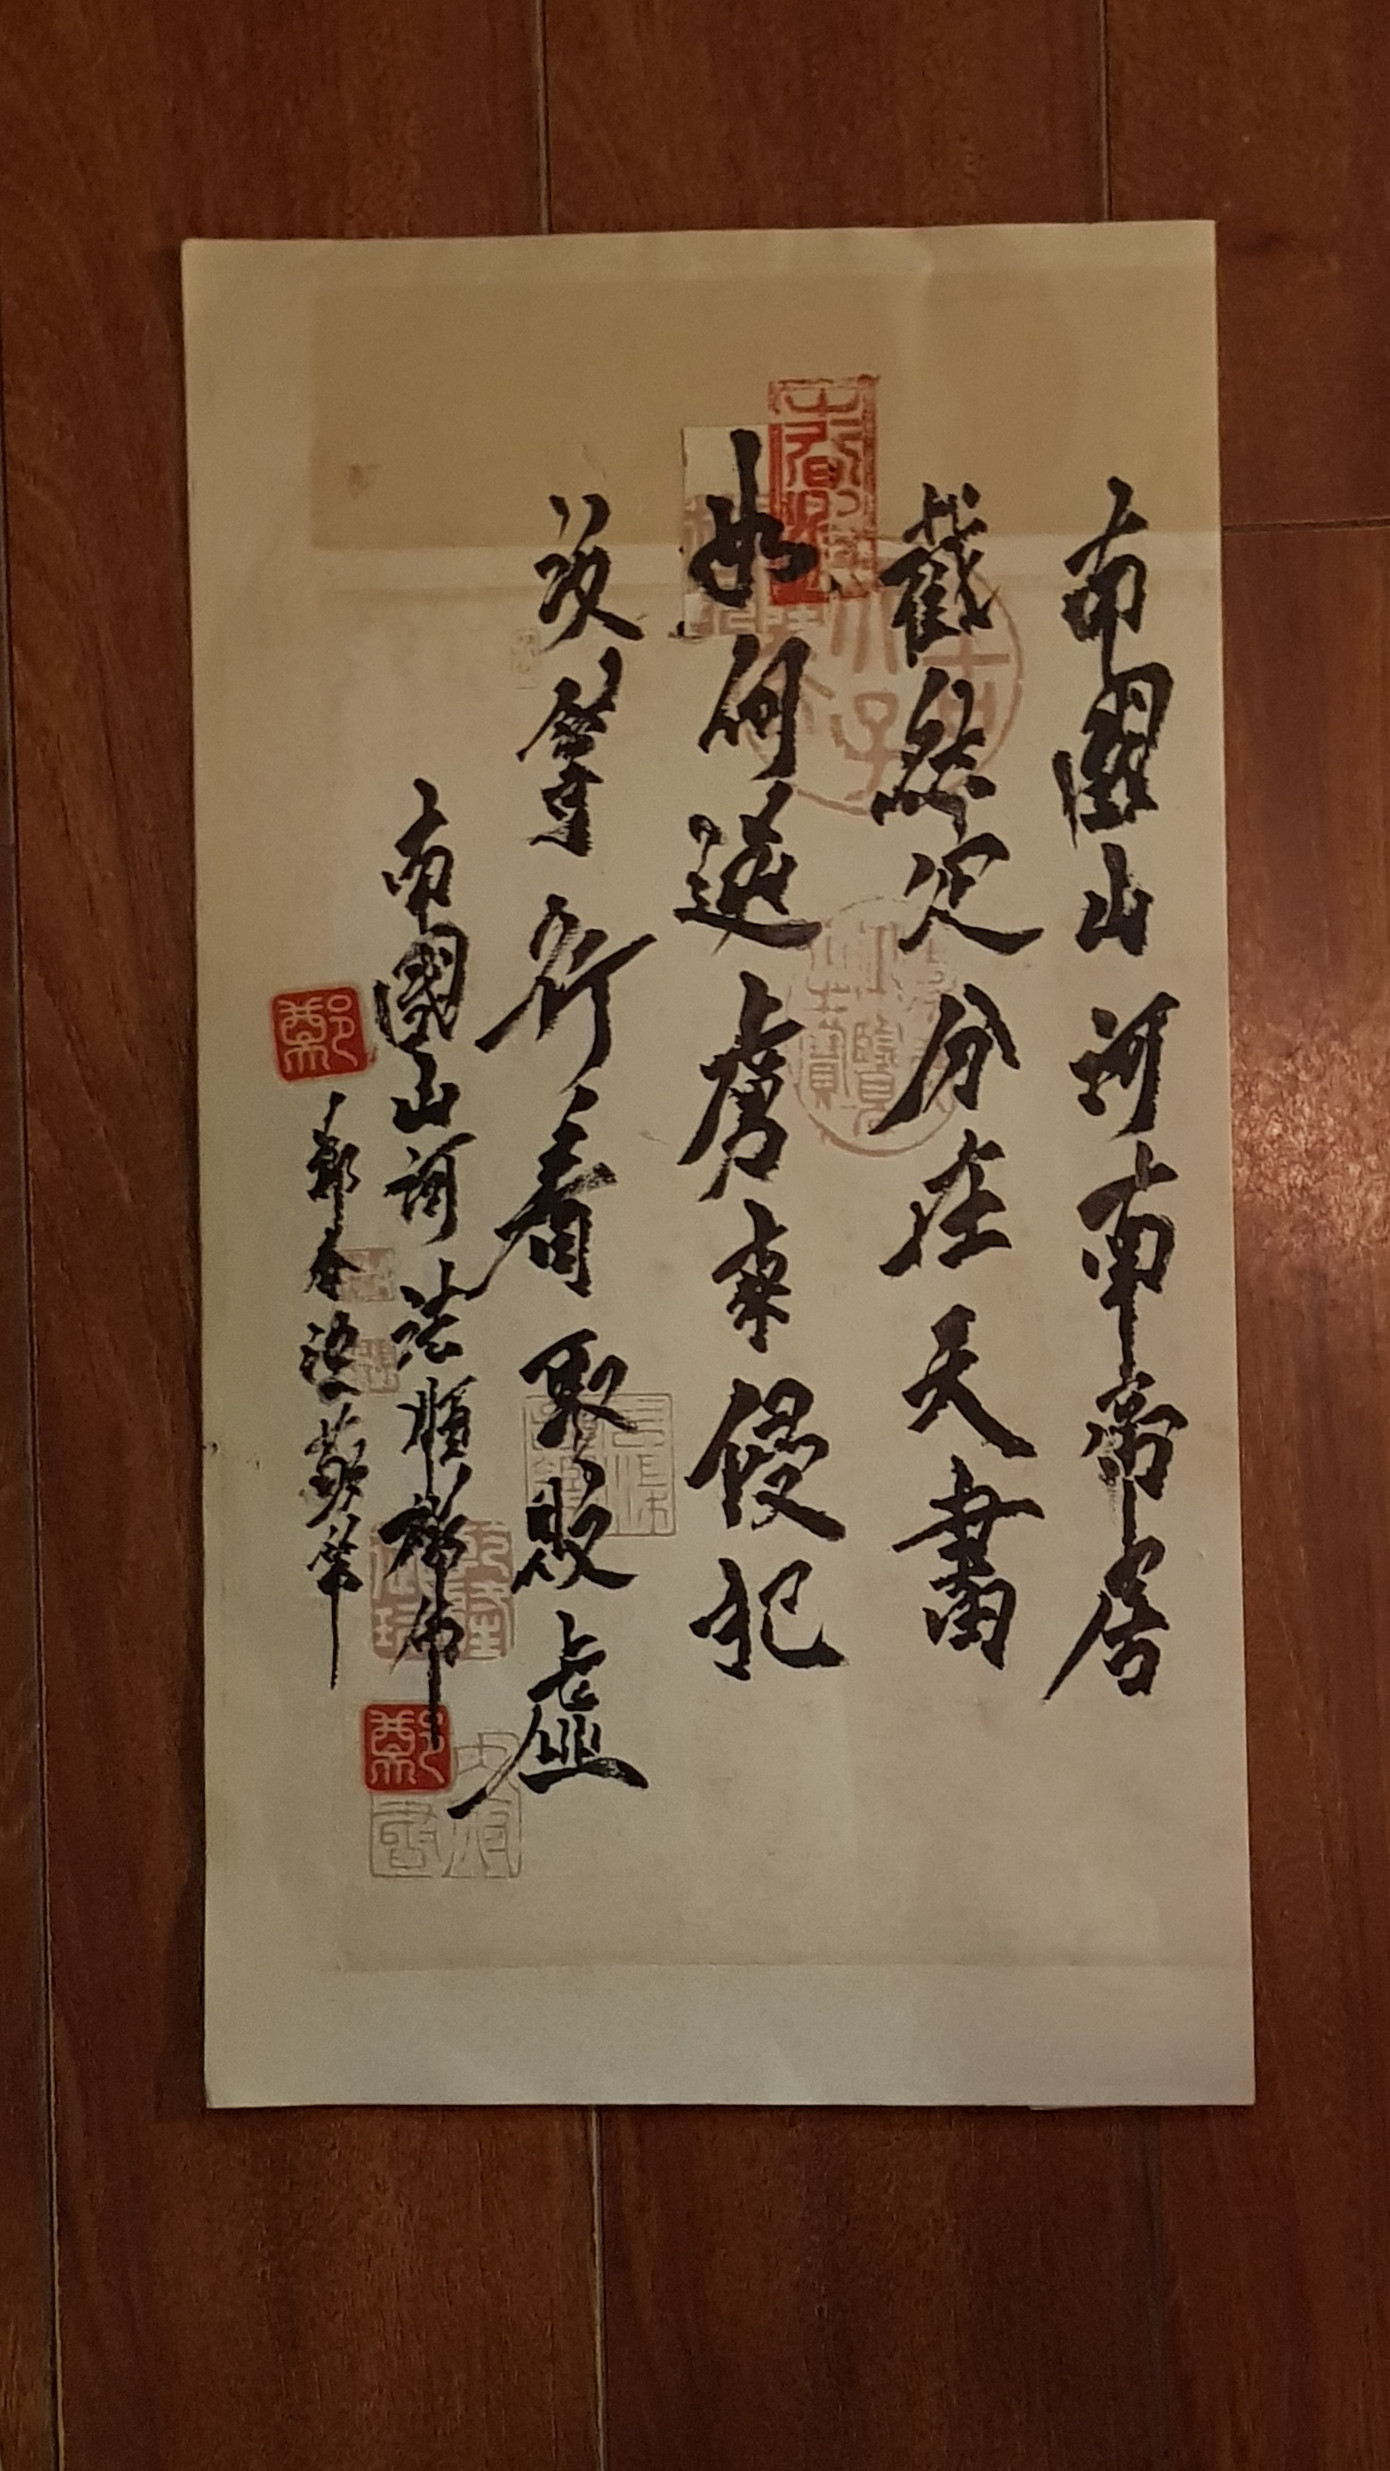 南國山河南帝居
截然定分在天書
如何逆虜來侵犯
汝等行看取敗虛
南國山河 法順禪師
鄭
鄭 春 敬筆
鄭